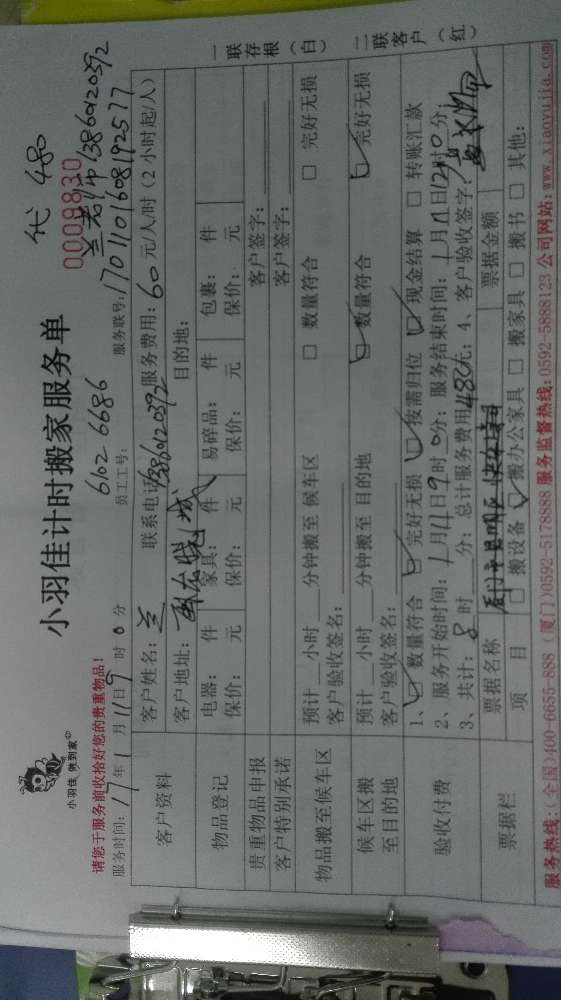 代 480
0009830
小羽佳 做到家
小羽佳计时搬家服务单
兰老师 13860120392
请您于服务前收拾好您的贵重物品!
6102 6686
服务时间: 17 年 1 月 11 日 9 时 0 分 员工工号: 服务联号: 1701101608192577
客户资料
客户姓名: 兰 联系电话: 13860120392 服务费用: 60 元/人/时 (2 小时起/人)
客户地址: 目的地:
物品登记
电器: 件 家具: 件 易碎品: 件 包裹: 件
保价: 元 保价: 元 保价: 元 保价: 元
贵重物品申报 客户签字:
客户特别承诺 客户签字:
物品搬至候车区
预计 小时 分钟搬至 候车区 □ 数量符合 □ 完好无损
客户验收签名:
候车区搬至目的地
预计 小时 分钟搬至 目的地 数量符合 完好无损
客户验收签名:
验收付费
1、 数量符合 完好无损 按需归位 现金结算 □ 转账汇款
2、服务开始时间: 1 月 11 日 9 时 0 分; 服务结束时间: 1 月 11 日 12 时 0 分;
3、共计: 8 时 分; 总计服务费用 480 元; 4、客户验收签字:
票据栏
票据名称 票据金额
项 目 □ 搬设备 搬办公家具 □ 搬家具 □ 搬书 □ 其他:
一联存根(白) 二联客户(红)
服务热线:(全国)400-6655-888 (厦门)0592-5178888 服务监督热线:0592-5888123 公司网站: www.xiaoyujia.com